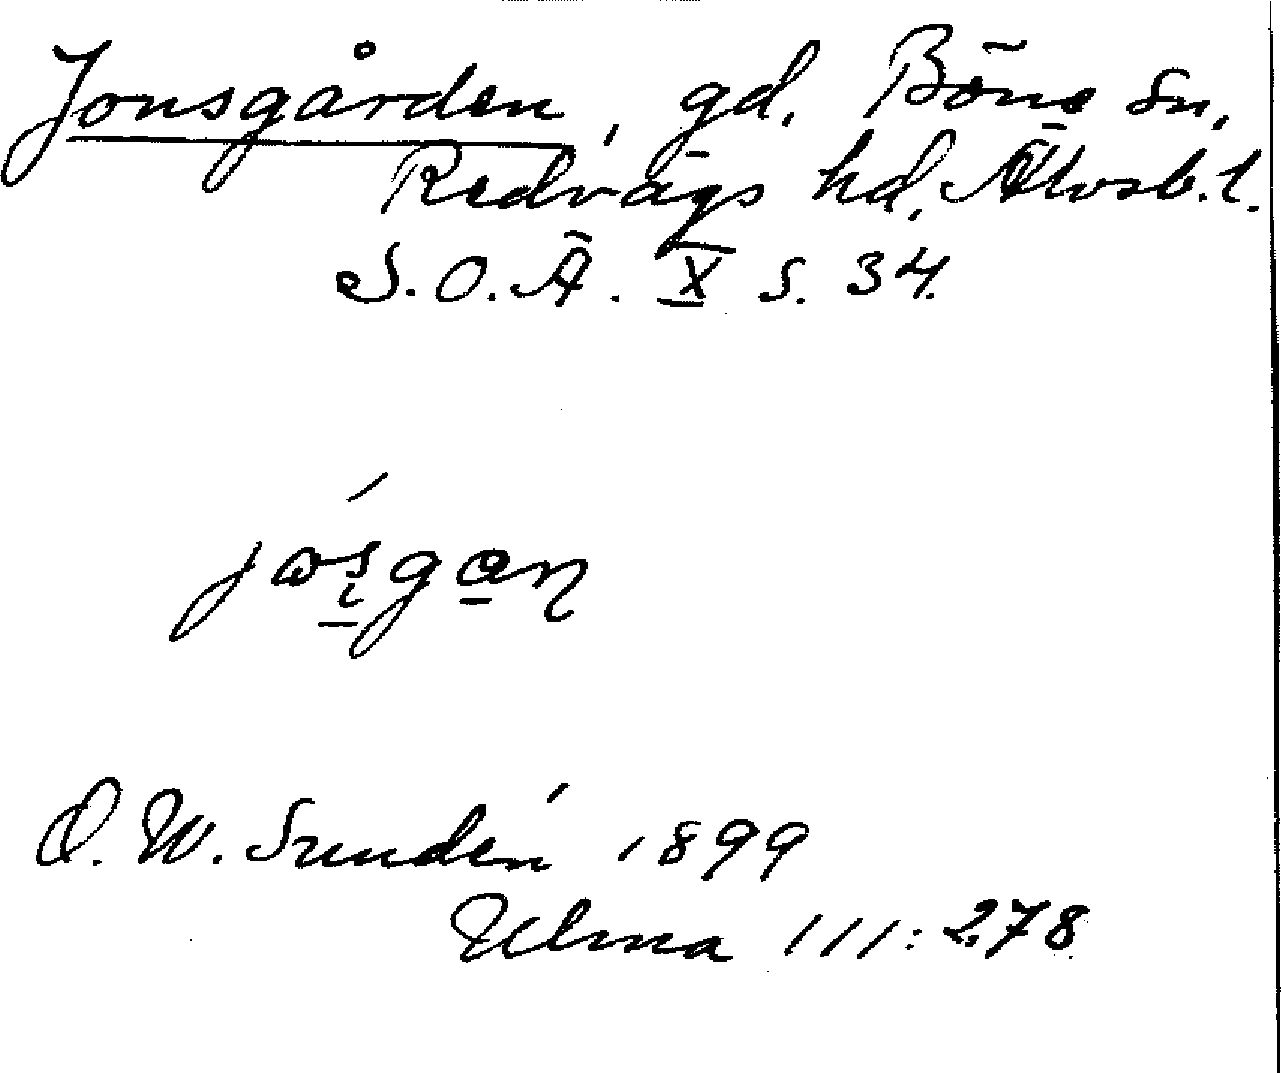 Jonsgården, gd. Böne sn,
Redvägs hd, Älvsb. l.
S.O.Ä. X s. 34.
D. W. Sundén 1899
Ulma 111:278